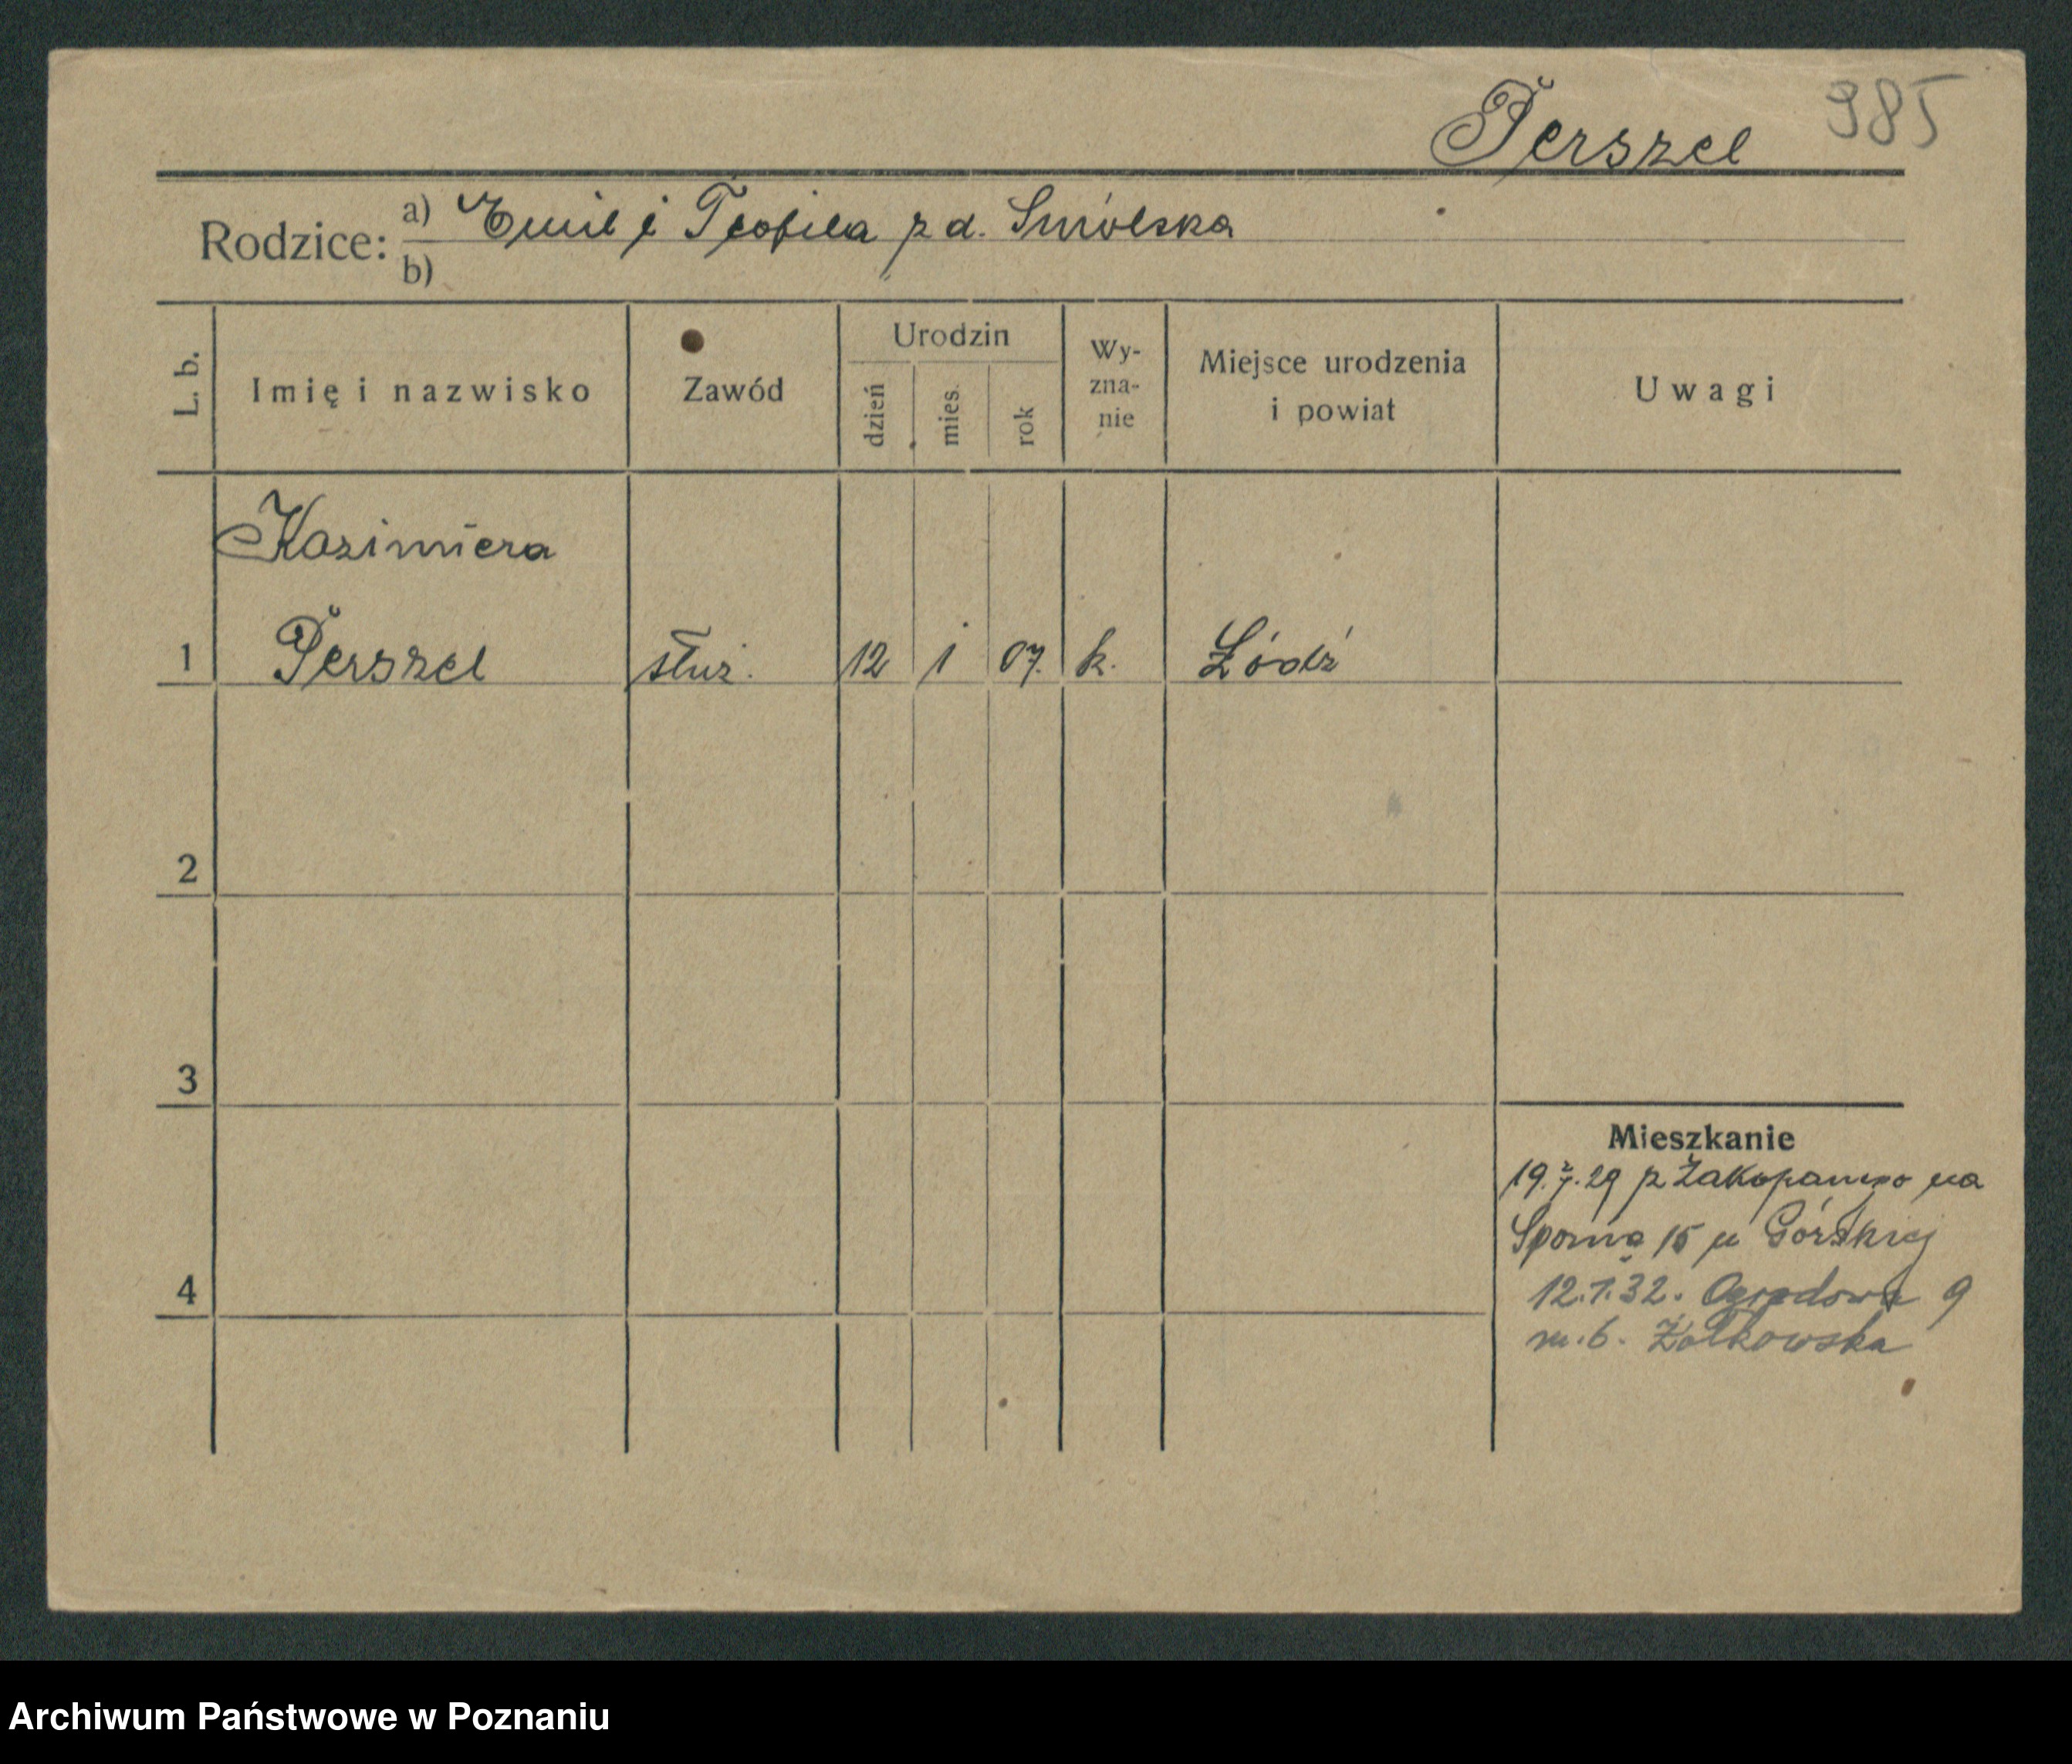 Perszel 985
Rodzice: a) Emil i Teofila z d. Smólska
b)
L. b.
Imię i nazwisko
Zawód
Urodzin
dzień
mies.
rok
Wy-
zna-
nie
Miejsce urodzenia
i powiat
Uwagi
Kazimiera
1 Perszel służ. 12 1 07. k. Łódź
2
3
Mieszkanie
19. 29 z Zakopanego na
Sporna 15 u Górskiej
4
12.1.32. Ogrodowa 9
m.6. Żółkowska
Archiwum Państwowe w Poznaniu